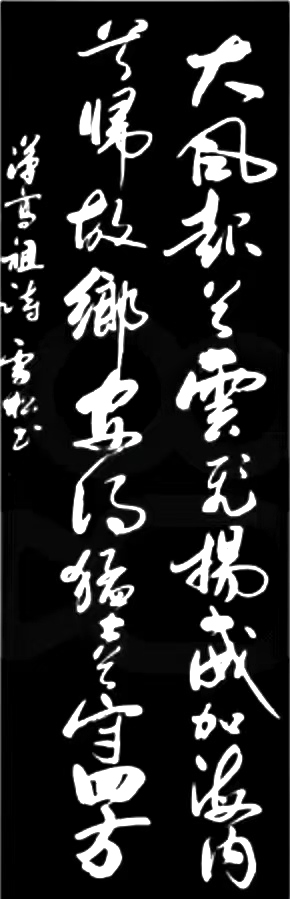 大風起兮雲飛揚威加海内
兮歸故鄉安得猛士兮守四方
漢高祖詩 雪松书